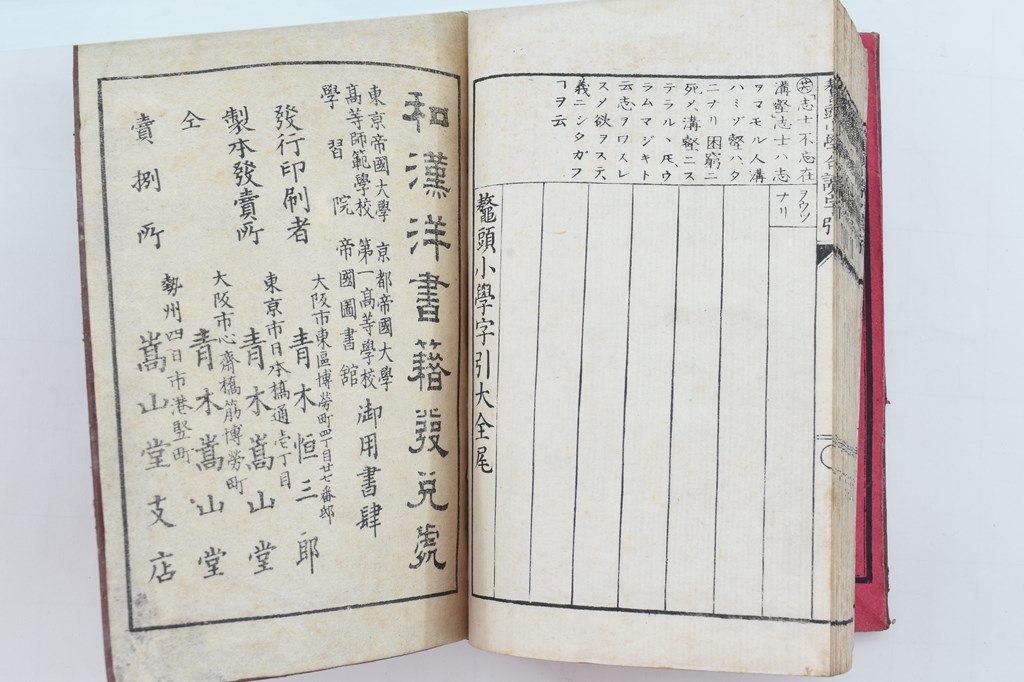 ㊍「志士不忘在
溝壑」志士ハ志
ヲマモル人溝
ハミゾ壑ハタ
ニナリ困窮ニ
死メ、溝壑ニス
テラルヽ𪜈、ウ
ラムマジキト
云志ヲワスレ
スメ欲ヲステ、
義ニシタガフ
ヿヲ云
鼇頭小學字引大全尾
和漢洋書籍發兌處
東京帝國大學
高等師範學校
學習院
京都帝國大學
第一高等學校
帝國圖書館
御用書肆
發行印刷者
大阪市東區博勞町四丁目廿七番邸
青木恒三郎
製本發賣所
東京市日本橋通壱丁目
青木嵩山堂
仝
大阪市心齋橋筋博勞町
青木嵩山堂
賣捌所
勢州四日市港竪町
嵩山堂支店